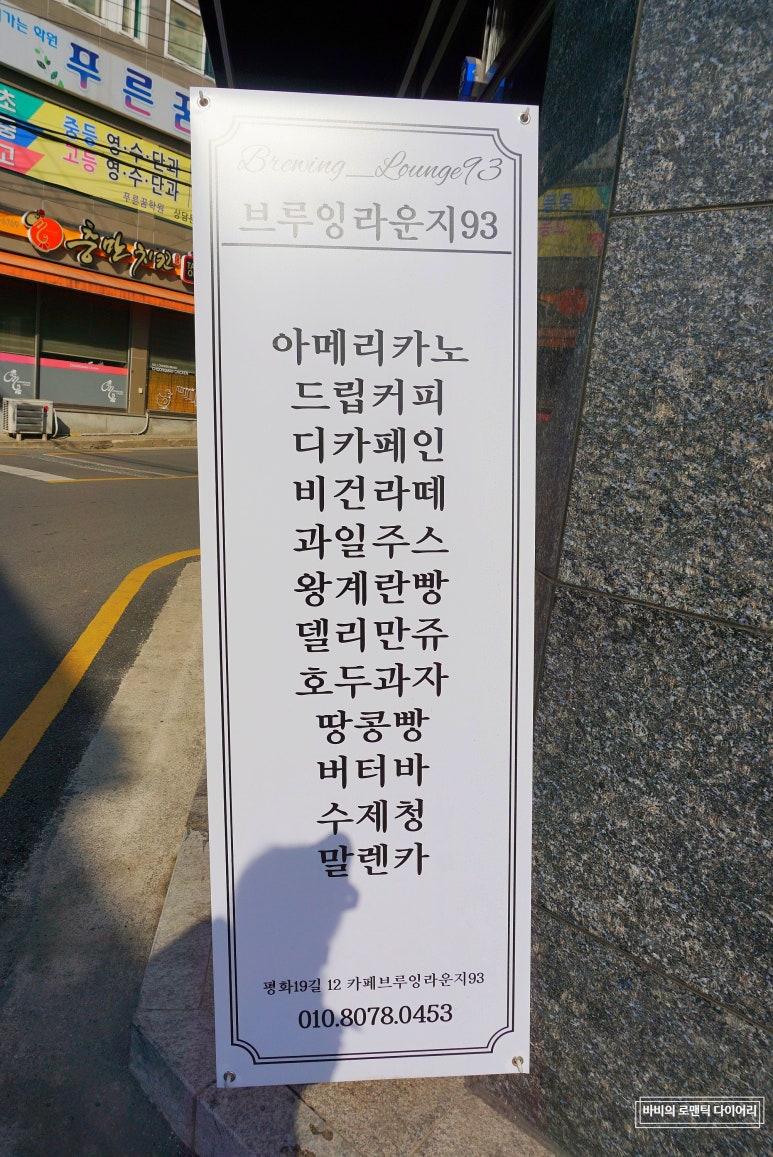 푸른꿈
중등 영·수·단과
고등 영·수·단과
푸른꿈학원
충만치킨
Brewing_Lounge93
브루잉라운지93
아메리카노
드립커피
디카페인
비건라떼
과일주스
왕계란빵
델리만쥬
호두과자
땅콩빵
버터바
수제청
말렌카
평화19길 12 카페브루잉라운지93
010.8078.0453
바비의 로맨틱 다이어리